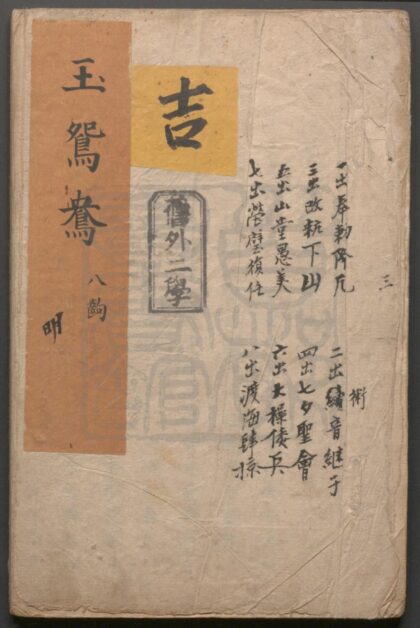 玉鴛鴦 八齣
明
吉
外二學
三
術
一出奉勅降凡
二出音継子
三出改粧下山
四出七夕聖會
五出山童愚美
六出大操倭兵
七出榮復任
八出渡海肆掠